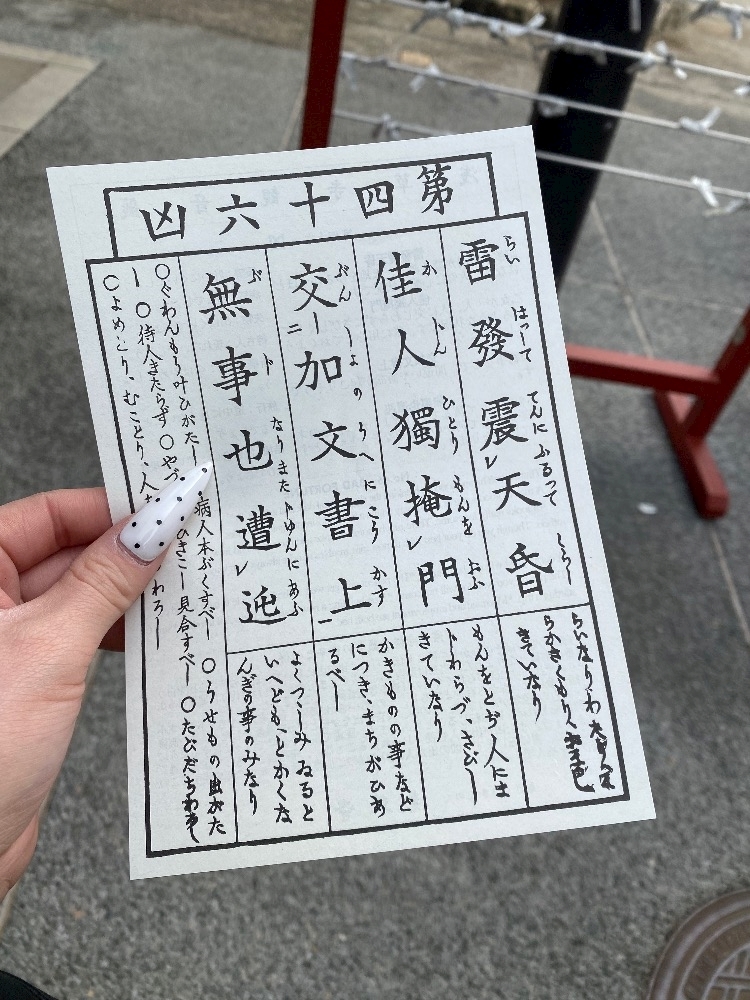 第四十六凶
雷發震天昏
らい はつして てんに ふるつて くらし
佳人獨掩門
かじん ひとり もんを おふ
交加文書上
ぶんしよの うへに こうかす
無事也遭迍
ぶじなり また じゆんに あふ
らいなりわ
らかきくもり、
きていなり
もんをとぢ、人にま
じわらづ、さびし
きていなり
かきものの事など
につき、まちがひあ
るべし
よくつゝしみゐると
いへども、とかくな
んぎの事のみなり
〇ぐわんもう叶ひがたし 病人本ぶくすべし 〇うせもの出がた
し 〇待人きたらず 〇やづ ひきこし見合すべし 〇たびだちわろし
〇よめとり、むことり、人 わろし